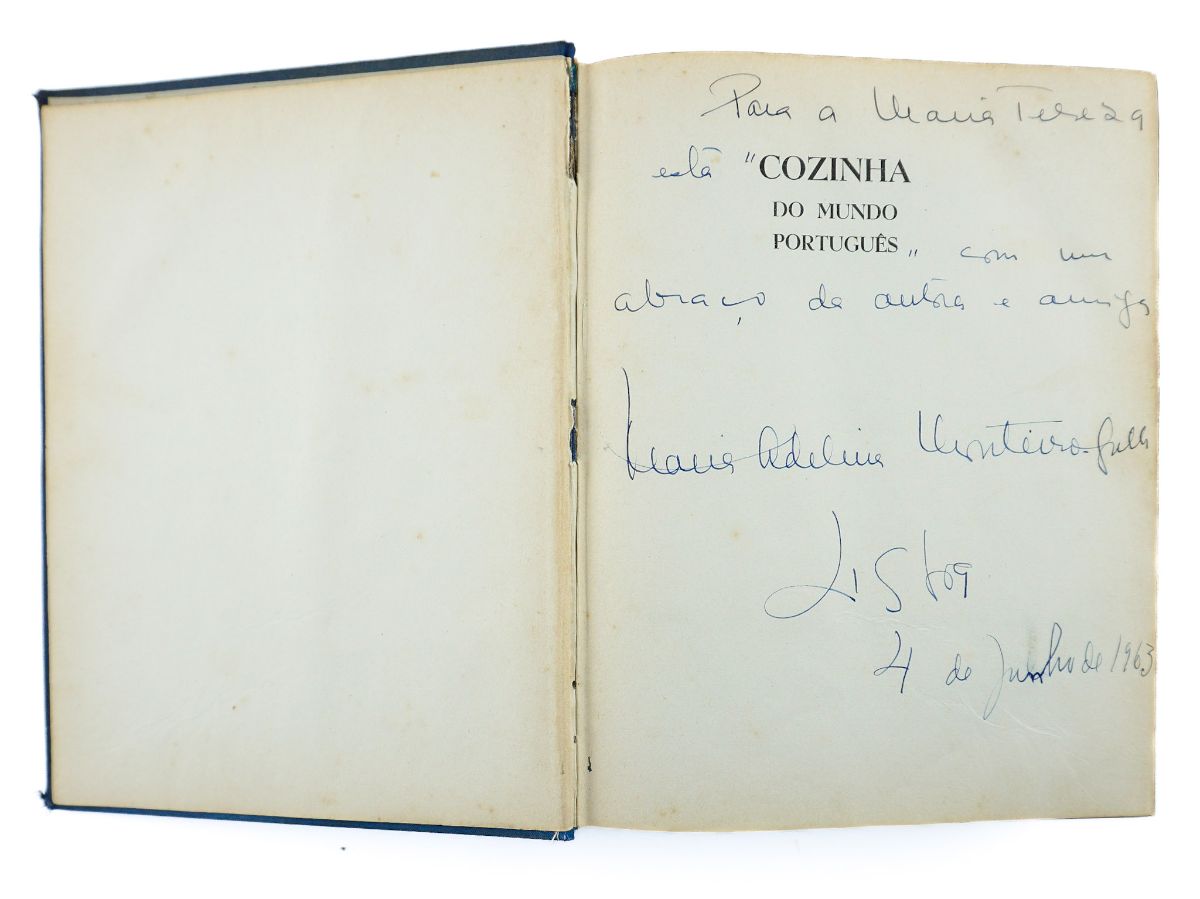 Para a Maria Tereza
está "COZINHA
DO MUNDO
PORTUGUÊS" com um
abraço da autora e amiga
Maria Adelina Monteiro Grillo
Lisboa
4 de Junho de 1963